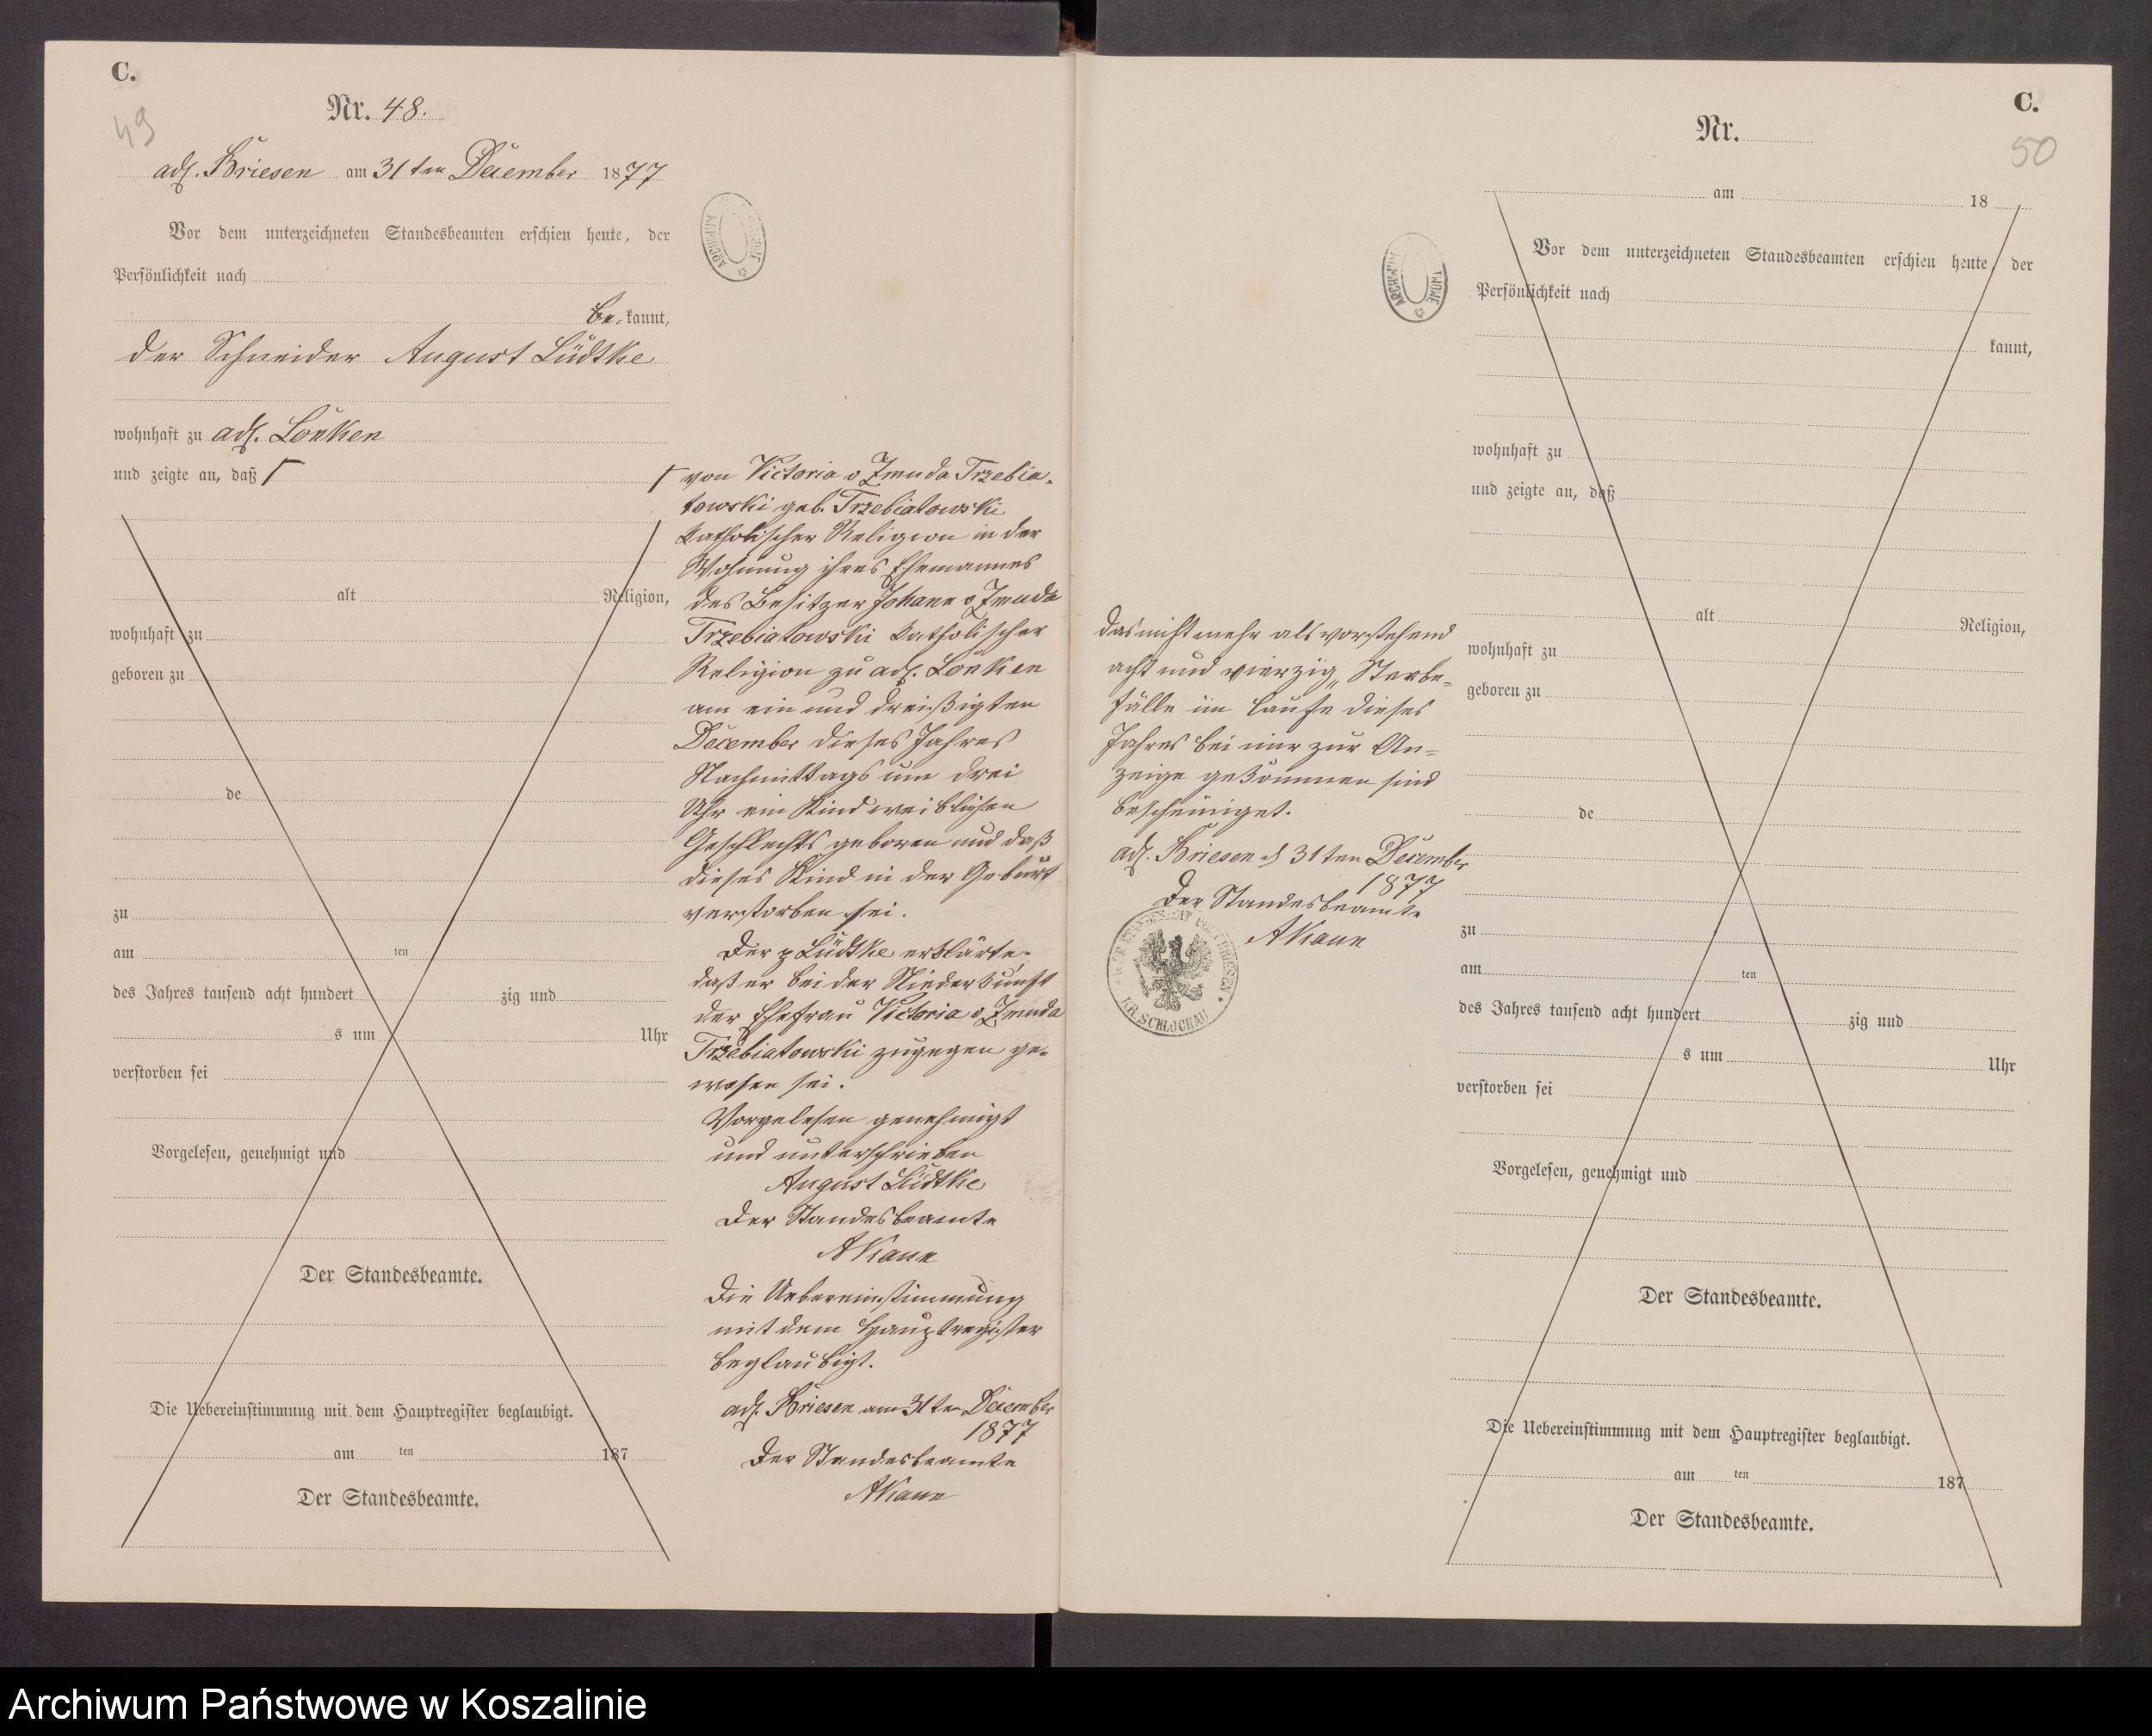 C.
49
Nr. 48.
adl. Briesen am 31ten December 1877
Vor dem unterzeichneten Standesbeamten erschien heute, der
Persönlichkeit nach
be kannt,
der Schneider August Lüdtke
wohnhaft zu adl. Lonken
und zeigte an, daß Γ
alt Religion,
wohnhaft zu
geboren zu
de
zu
am ten
des Jahres tausend acht hundert zig und
s um Uhr
verstorben sei
Vorgelesen, genehmigt und
Der Standesbeamte.
Die Uebereinstimmung mit dem Hauptregister beglaubigt.
am ten 187
Der Standesbeamte.
Γ von Victoria v Zmuda Trzebia-
towski geb. Trzebiatowski
katholischer Religion in der
Wohnung ihres Ehemannes
des Besitzer Johann v Zmuda
Trzebiatowski katholischer
Religion zu adl. Lonken
am ein und dreißigten
December dieses Jahres
Nachmittags um drei
Uhr ein Kind weiblichen
Geschlechts geboren und daß
dieses Kind in der Geburt
verstorben sei.
Der p Lüdtke erklärte,
daß er bei der Niederkunft
der Ehefrau Victoria v Zmuda
Trzebiatowski zugegen ge-
wesen sei.
Vorgelesen genehmigt
und unterschrieben
August Lüdtke
Der Standesbeamte
AKane
Die Uebereinstimmung
mit dem Hauptregister
beglaubigt.
adl. Briesen am 31ten December
1877
Der Standesbeamte
AKane
Das nicht mehr als vorstehend
acht und vierzig „ Sterbe-
fälle im Laufe dieses
Jahres bei mir zur An-
zeige gekommen sind
bescheiniget.
adl. Briesen d 31ten December
1877
Der Standesbeamte
AKane
KR. SCHLOCHAU
C.
50
Nr.
am 18
Vor dem unterzeichneten Standesbeamten erschien heute, der
Persönlichkeit nach
kannt,
wohnhaft zu
und zeigte an, daß
alt Religion,
wohnhaft zu
geboren zu
de
zu
am ten
des Jahres tausend acht hundert zig und
s um Uhr
verstorben sei
Vorgelesen, genehmigt und
Der Standesbeamte.
Die Uebereinstimmung mit dem Hauptregister beglaubigt.
am ten 187
Der Standesbeamte.
Archiwum Państwowe w Koszalinie